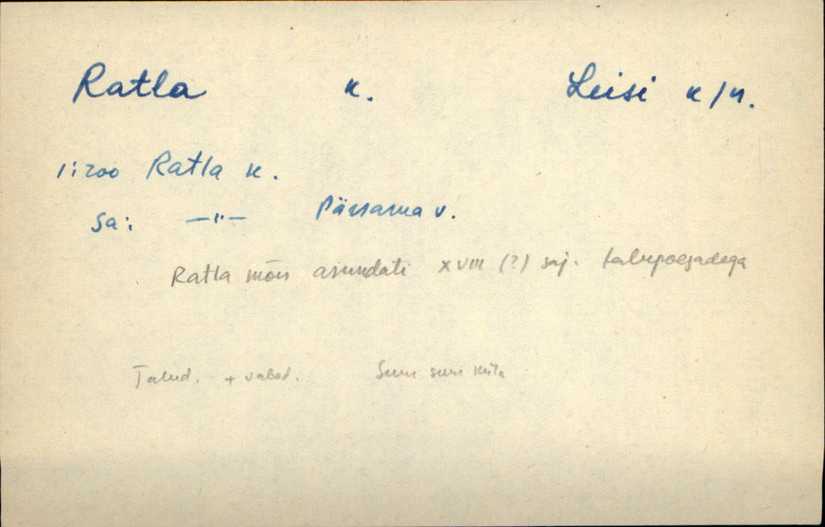 Ratla k. Leisi k/n.
1:200 Ratla k.
Sa: —"— Pärsama v.
Ratla mõis asundati XVIII (?) saj. talupoegadega
Talud. + vabad. Suur suur küla